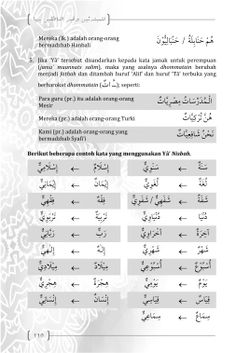 Mereka (lk.) adalah orang-orang هُمْ حَنَابِلَةٌ / حَنْبَلِيُّوْنَ
bermadzhab Hanbali
3. Jika Yā' tersebut disandarkan kepada kata jamak untuk perempuan
(jama' muannats salim), maka yang asalnya dhommatain berubah
menjadi fatḥah dan ditambah huruf 'Alif' dan huruf 'Tā' terbuka yang
berharokat dhommatain [ـَاتٌ], seperti:
Para guru (pr.) itu adalah orang-orang الْمُدَرِّسَاتُ مِصْرِيَّاتٌ
Mesir
Mereka (pr.) adalah orang-orang Turki هُنَّ تُرْكِيَّاتٌ
Kami (pr.) adalah orang-orang yang نَحْنُ شَافِعِيَّاتٌ
bermadzhab Syafi'i
Berikut beberapa contoh kata yang menggunakan Yā' Nisbah,
سَنَةٌ ← سَنَوِيٌّ إِسْلَامٌ ← إِسْلَامِيٌّ
لُغَةٌ ← لُغَوِيٌّ إِيْمَانٌ ← إِيْمَانِيٌّ
شَفَةٌ ← شَفَهِيٌّ / شَفَوِيٌّ فِقْهٌ ← فِقْهِيٌّ
دُنْيَا ← دُنْيَاوِيٌّ تَرْبِيَةٌ ← تَرْبَوِيٌّ
آخِرَةٌ ← أُخْرَوِيٌّ رَبٌّ ← رَبَّانِيٌّ
شَهْرٌ ← شَهْرِيٌّ إِلٰهٌ ← إِلٰهِيٌّ
أُسْبُوْعٌ ← أُسْبُوْعِيٌّ مِيْلَادٌ ← مِيْلَادِيٌّ
يَوْمٌ ← يَوْمِيٌّ هِجْرَةٌ ← هِجْرِيٌّ
قِيَاسٌ ← قِيَاسِيٌّ إِنْسَانٌ ← إِنْسَانِيٌّ
سِمَاعٌ ← سِمَاعِيٌّ